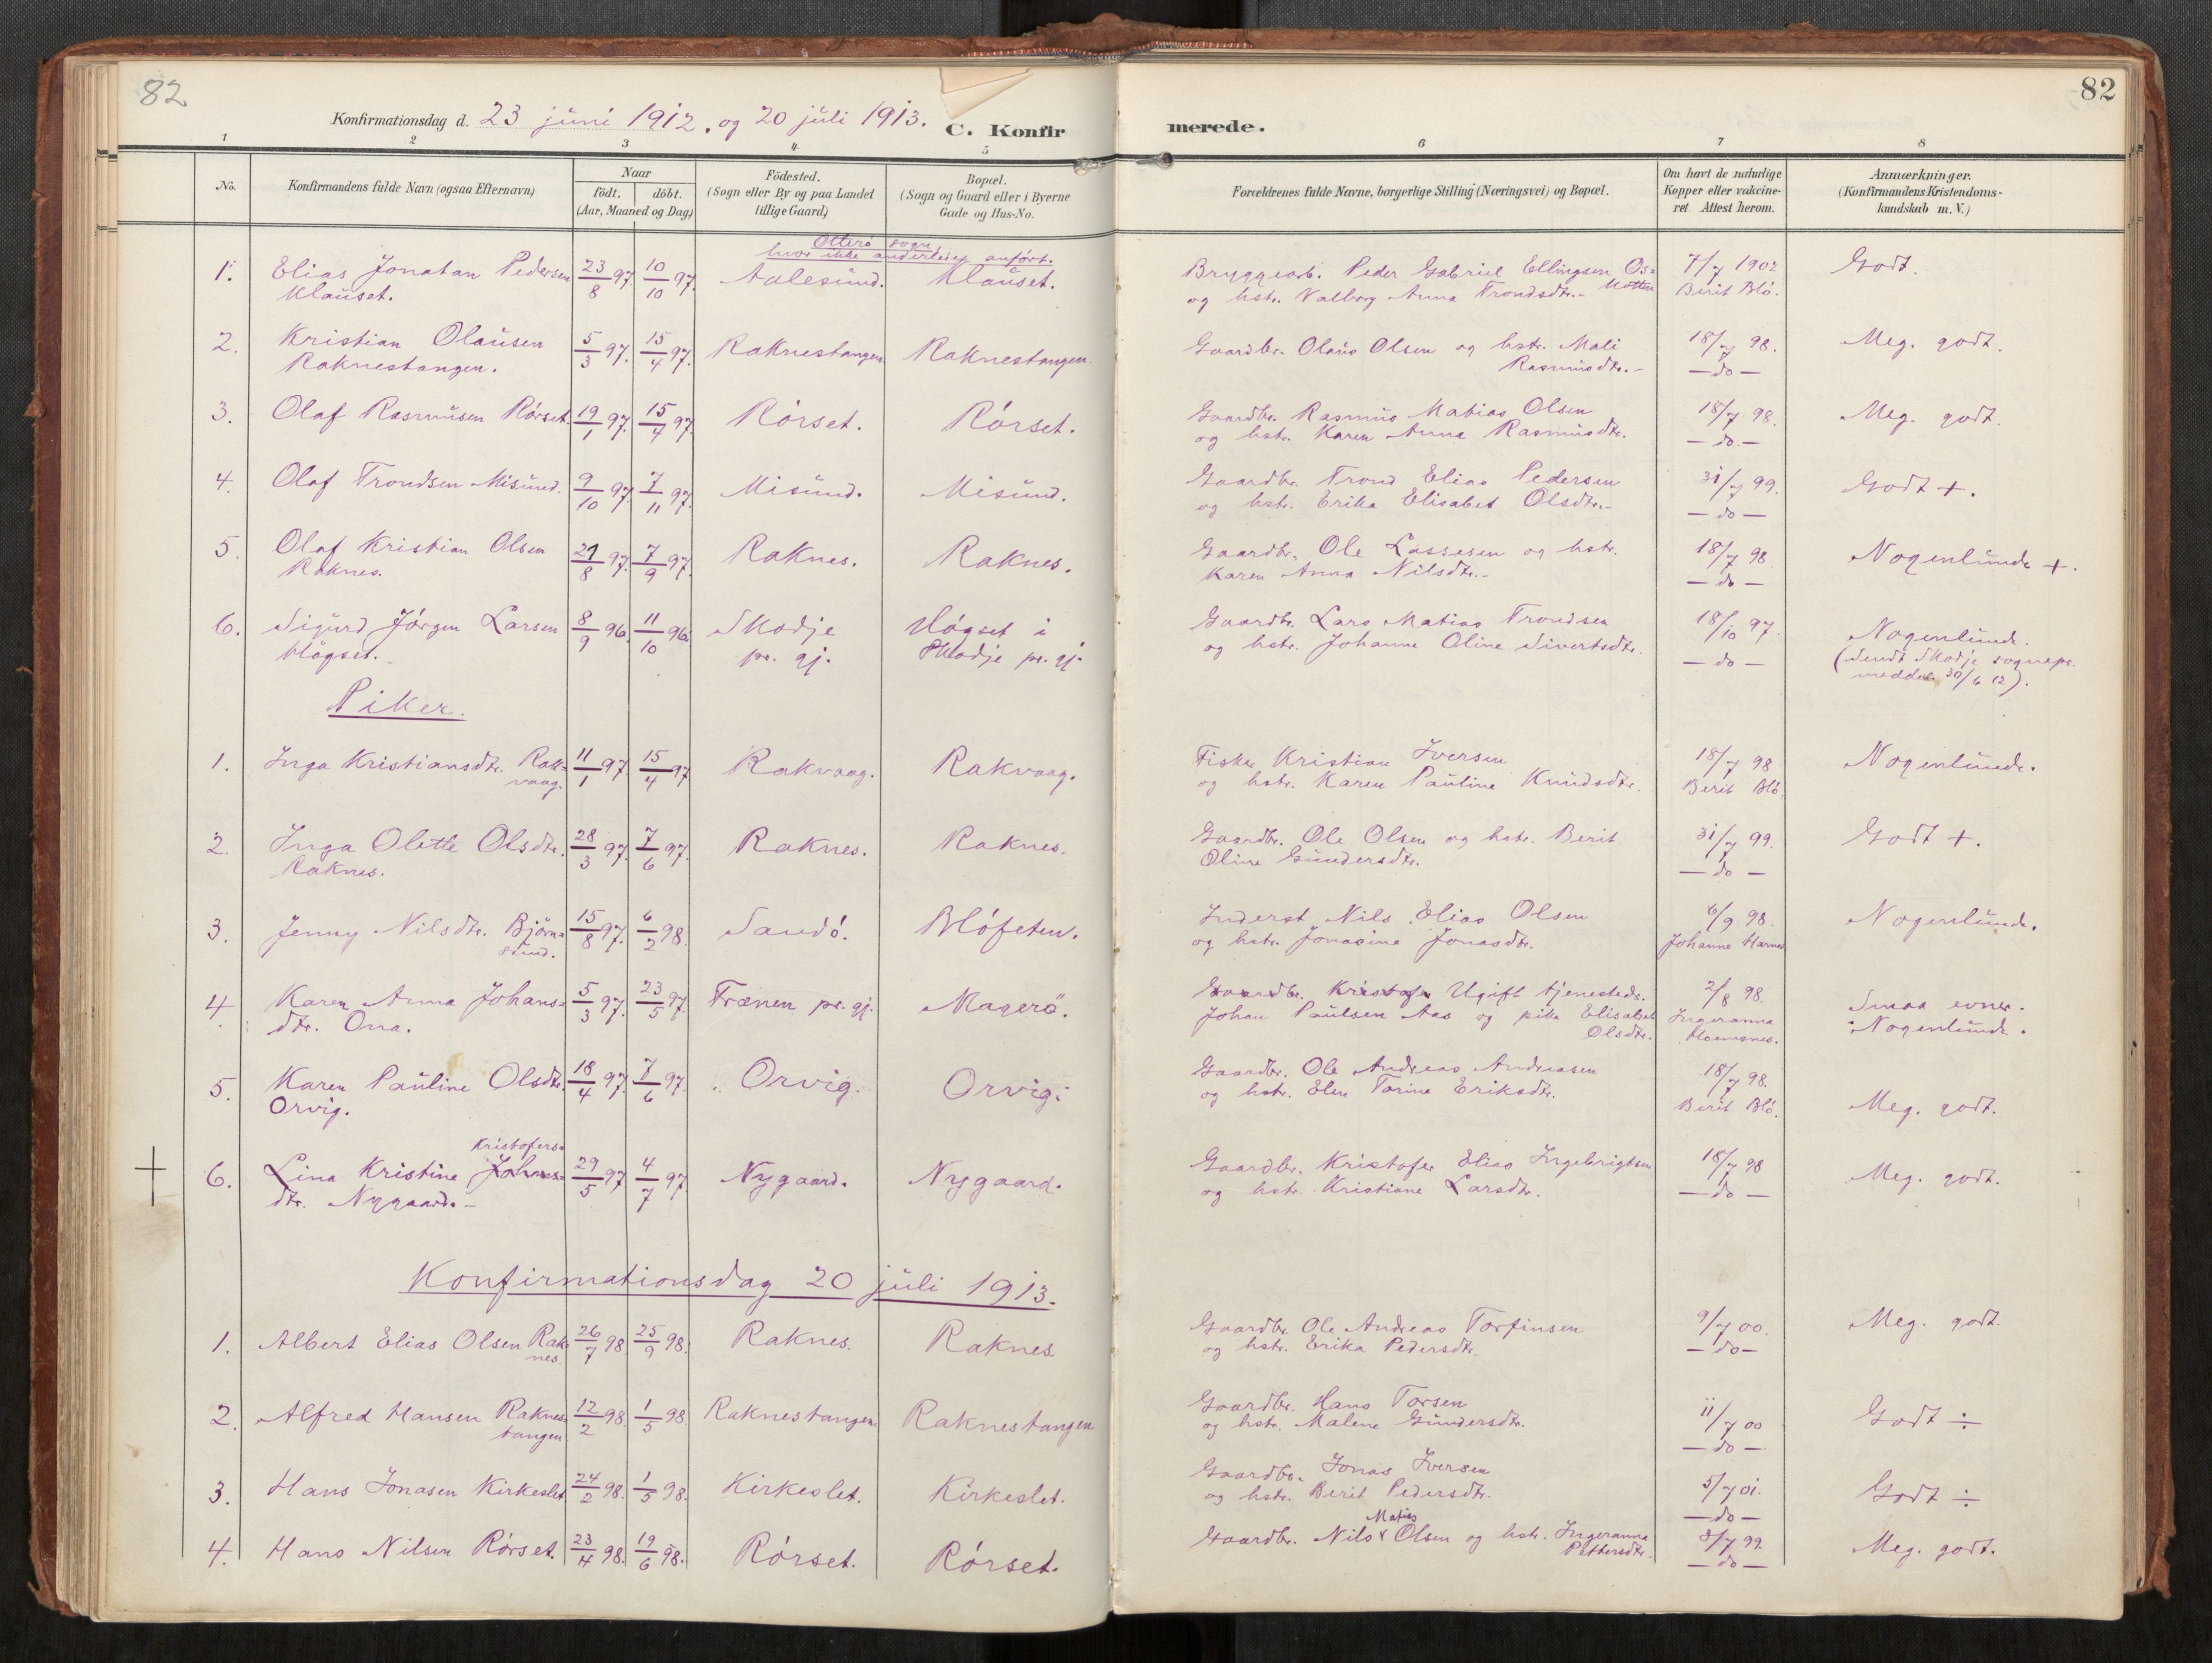 82
82
Konfirmationsdag d. 23 juni 1912. og 20 juli 1913.
C. Konfirmerede.
1 2 3 4 5 6 7 8
No.
Konfirmandens fulde Navn (ogsaa Efternavn)
Naar
födt. döbt.
(Aar, Maaned og Dag)
Födested.
(Sogn eller By og paa Landet
tillige Gaard)
Bopæl.
(Sogn og Gaard eller i Byerne
Gade og Hus-No.
Forældrenes fulde Navne, borgerlige Stilling (Næringsvei) og Bopæl.
Om havt de naturlige
Kopper eller vakcine-
ret Attest herom.
Anmærkninger.
(Konfirmandens Kristendoms-
kundskab m. V.)
Otterö sogn
hvor ikke anderledes anført.
1. Elias Jonatan Pedersen 23/8 97. 10/10 97. Aalesund. Klauset. Bryggearb. Peder Gabriel Ellingsen 7/7 1902 Godt.
Klauset. og hstr. Valborg Anna Trondsdtr.- Berit Blö.
2. Kristian Olausen 5/3 97. 15/4 97. Raknestangen Raknestangen Gaardbr. Olaus Olsen og hstr. Mali 18/7 98. Meg. godt.
Raknestangen. Rasmusdtr.- -do-
3. Olaf Rasmusen Rörset. 19/1 97. 15/4 97. Rörset. Rörset. Gaardbr. Rasmus Matias Olsen 18/7 98. Meg. godt.
og hstr. Karen Anna Rasmusdtr. -do-
4. Olaf Trondsen Misund. 9/10 97. 7/11 97. Misund. Misund. Gaardbr. Trond Elias Pedersen 31/7 99. Godt +.
og hstr. Erika Elisabet Olsdtr.- -do-
5. Olaf Kristian Olsen 21/8 97. 7/9 97. Raknes. Raknes. Gaardbr. Ole Lassesen og hstr. 18/7 98. Nogenlunde +.
Raknes. Karen Anna Nilsdtr.- -do-
6. Sigurd Jörgen Larsen 8/9 96. 11/10 96. Skodje Högset i Gaardbr. Lars Matias Trondsen 18/10 97. Nogenlunde.
Högset. pr. gj. Skodje pr. gj. og hstr. Johanne Oline Sivertsdtr. -do- (Sendt Skodje sognepr.
meddel. 30/6 12).
Piker.
1. Inga Kristiansdtr. Rak- 11/1 97. 15/4 97 Rakvaag. Rakvaag. Fisker Kristian Iversen 18/7 98 Nogenlunde.
vaag. og hstr. Karen Pauline Knudsdtr. Berit Blö
2. Inga Olette Olsdtr. 28/3 97. 7/6 97. Raknes. Raknes. Gaardbr. Ole Olsen og hstr. Berit 31/7 99. Godt +.
Raknes. Oline Gundersdtr. -do-
3. Jenny Nilsdtr. Björn- 15/8 97. 6/2 98. Sandö. Blöfeten. Inderst Nils Elias Olsen 6/9 98. Nogenlunde.
sund. og hstr. Jonasine Jonasdtr. Johanne Harnes
4. Karen Anna Johans- 5/3 97. 23/5 97. Frænen pr. gj. Magerö. Gaardbr. Kristofer Ugift tjenestedr. 2/8 98. Smaa evner.
dtr. Ona. Johan Paulsen Aas og pike Elisabet Ingeranna Nogenlunde.
Olsdtr.
5. Karen Pauline Olsdtr. 18/4 97. 7/6 97. Orvig. Orvig. Gaardbr. Ole Andreas Andreasen 18/7 98. Meg. godt.
Orvig. og hstr. Elen Torine Eriksdtr. Berit Blö.
Kristofers-
+ 6. Lina Kristine Johans- 29/5 97 4/7 97. Nygaard. Nygaard. Gaardbr. Kristofer Elias Ingebrigtsen 18/7 98 Meg. godt.
dtr. Nygaard.- og hstr. Kristiane Larsdtr. -do-
Konfirmationsdag 20 juli 1913.
1. Albert Elias Olsen Rak- 26/7 98 25/9 98. Raknes. Raknes Gaardbr. Ole Andreas Torfinsen 9/7 00. Meg. godt.
nes. og hstr. Erika Pedersdtr. -do-
2. Alfred Hansen Raknes- 12/2 98. 1/5 98. Raknestangen Raknestangen Gaardbr. Hans Torsen 11/7 00 Godt ÷
tangen og hstr. Malene Gundersdtr. -do-
3. Hans Jonasen Kirkeslet 24/2 98. 1/5 98. Kirkeslet. Kirkeslet. Gaardbr. Jonas Iversen 5/7 01. Godt ÷
og hstr. Berit Pedersdtr. -do-
Matias
4. Hans Nilsen Rörset. 23/4 98. 19/6 98. Rörset. Rörset. Gaardbr. Nils Olsen og hstr. Ingeranna 8/7 99. Meg. godt.
Pettersdtr. -do-